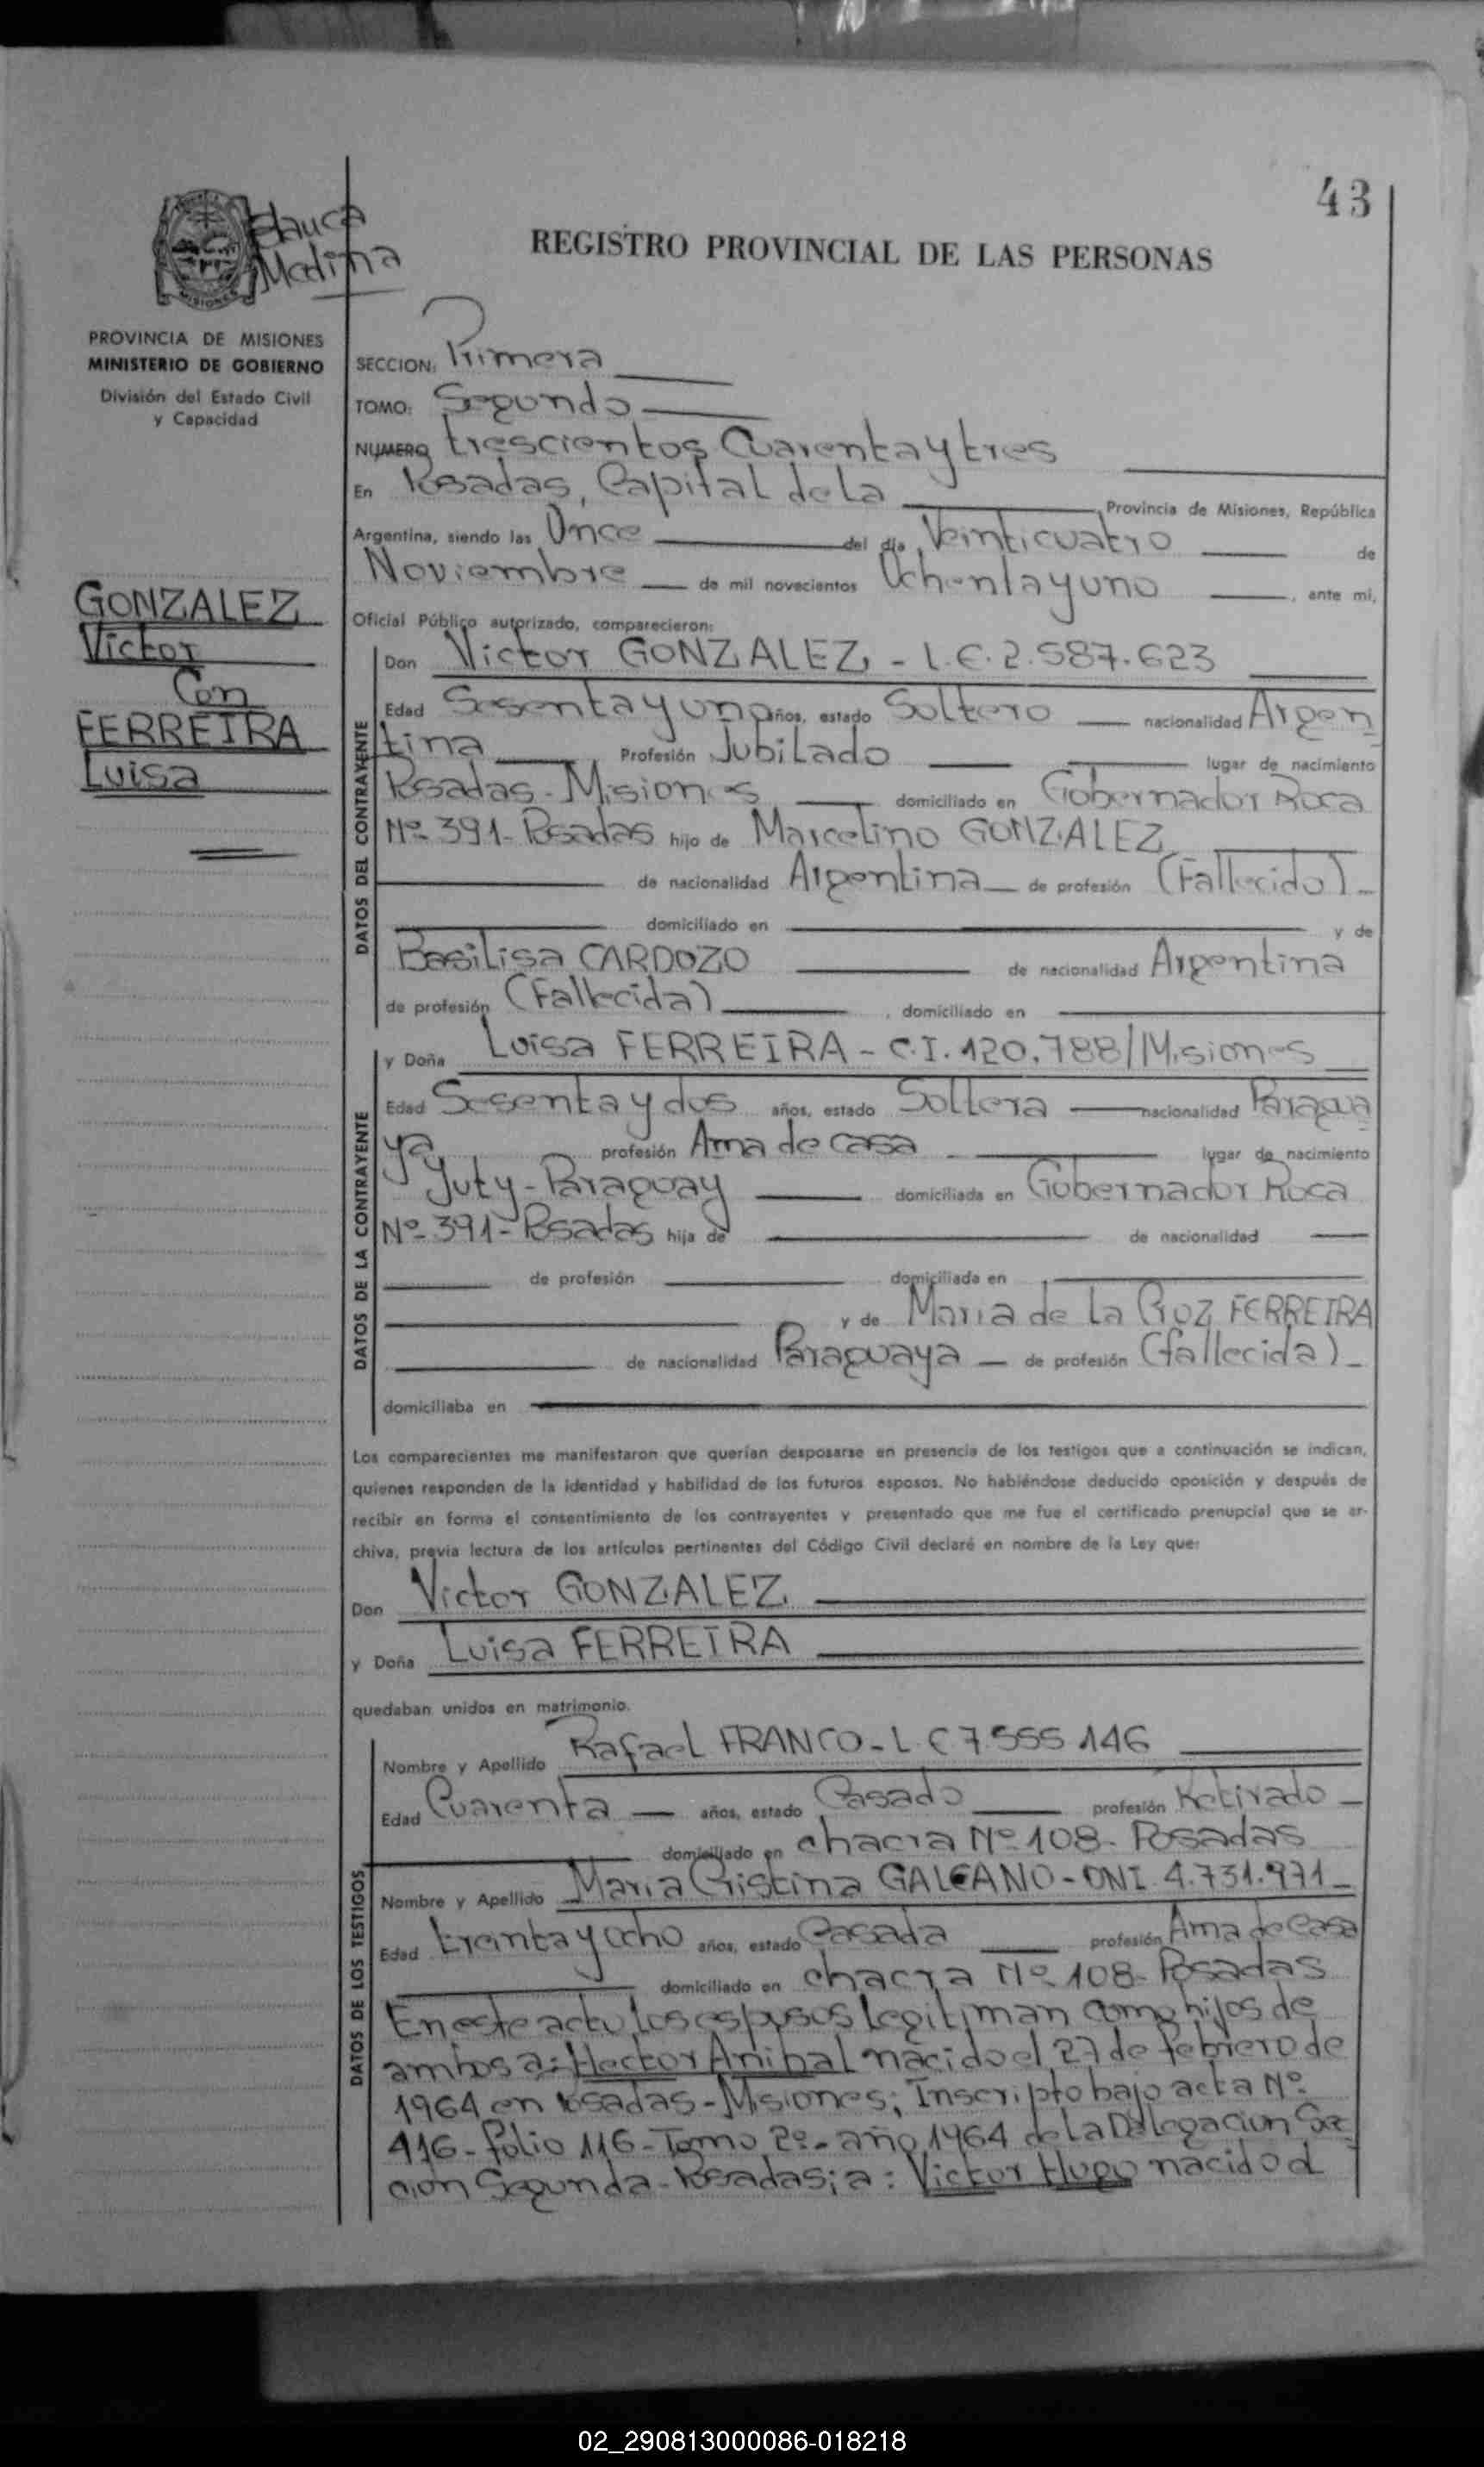 43
Medina
REGISTRO PROVINCIAL DE LAS PERSONAS
PROVINCIA DE MISIONES
MINISTERIO DE GOBIERNO
División del Estado Civil
y Capacidad
SECCION: Primera
TOMO: Segundo
NUMERO trescientos Cuarentaytres
En Posadas, Capital de la Provincia de Misiones, República
Argentina, siendo las Once del día Veinticuatro de
Noviembre de mil novecientos Ochentayuno, ante mi,
Oficial Público autorizado, comparecieron:
GONZALEZ
Victor
Con
FERREIRA
Luisa
DATOS DEL CONTRAYENTE
Don Victor GONZALEZ - L.E. 2.587.623
Edad Sesentayun años, estado Soltero nacionalidad Argen
tina Profesión Jubilado lugar de nacimiento
Posadas - Misiones domiciliado en Gobernador Roca
Nº 391 - Posadas hijo de Marcelino GONZALEZ
de nacionalidad Argentina de profesión (Fallecido)
domiciliado en y de
Basilisa CARDOZO de nacionalidad Argentina
de profesión (Fallecida), domiciliado en
DATOS DE LA CONTRAYENTE
y Doña Luisa FERREIRA - C.I. 120.788/Misiones
Edad Sesentaydos años, estado Soltera nacionalidad Paragua
ya profesión Ama de casa lugar de nacimiento
Yuty - Paraguay domiciliada en Gobernador Roca
Nº 391 - Posadas hija de de nacionalidad
de profesión domiciliada en
y de Maria de La Cruz FERREIRA
de nacionalidad Paraguaya de profesión (fallecida)
domiciliaba en
Los comparecientes me manifestaron que querían desposarse en presencia de los testigos que a continuación se indican,
quienes responden de la identidad y habilidad de los futuros esposos. No habiéndose deducido oposición y después de
recibir en forma el consentimiento de los contrayentes y presentado que me fue el certificado prenupcial que se ar-
chiva, previa lectura de los artículos pertinentes del Código Civil declaré en nombre de la Ley que:
Don Victor GONZALEZ
y Doña Luisa FERREIRA
quedaban unidos en matrimonio.
DATOS DE LOS TESTIGOS
Nombre y Apellido Rafael FRANCO - L E 7.555.146
Edad Cuarenta años, estado Casado profesión Retirado
domiciliado en chacra Nº 108 - Posadas
Nombre y Apellido Maria Cristina GALEANO - DNI. 4.731.971
Edad treintayocho años, estado Casada profesión Ama de Casa
domiciliado en chacra Nº 108 - Posadas
En este acto los esposos legitiman como hijos de
ambos a: Hector Anibal nacido el 27 de febrero de
1964 en Posadas - Misiones; Inscripto bajo acta Nº
416 - folio 116 - Tomo 2º - año 1964 de la Delegacion Sec
cion Segunda - Posadas; a: Victor Hugo nacido el
02_290813000086-018218